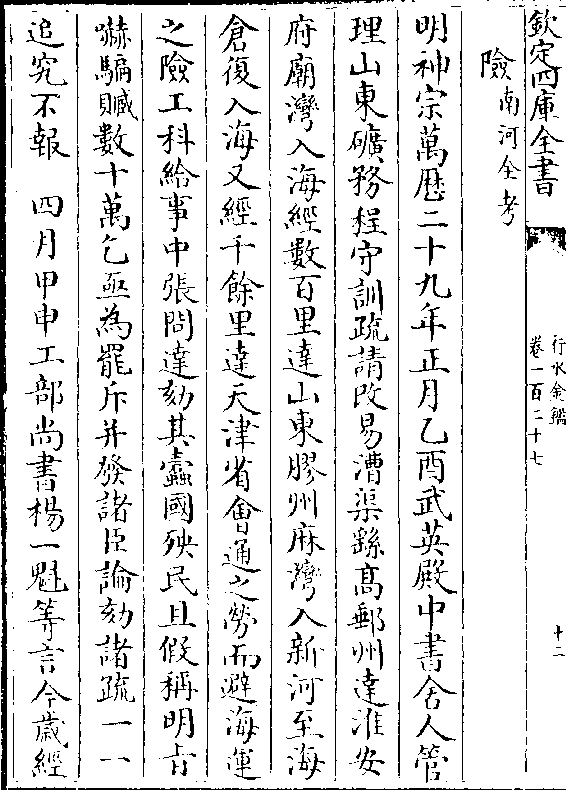 欽定四庫全書
行水金鑑
卷一百二十七
十二
險南河全考
明神宗萬歷二十九年正月乙酉武英殿中書舍人管
理山東礦務程守訓疏請改易漕渠繇高郵州達淮安
府廟灣入海經數百里達山東膠州麻灣入新河至海
倉復入海又經千餘里達天津省會通之勞而避海運
之險工科給事中張問達劾其蠧國殃民且假稱明㫖
嚇騙贓數十萬乞亟為罷斥并發諸臣論劾諸疏一一
追究不報 四月甲申工部尚書楊一魁等言今歲經